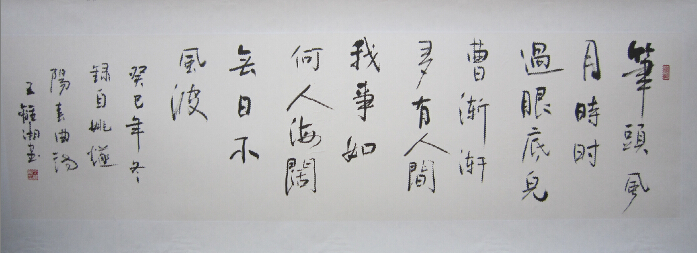 筆頭風
月時时
過眼底兒
曹漸渐
多有人問
我事如
何人海闊
無日不
風波
癸巳年冬
録自姚燧
陽春曲
王湘書